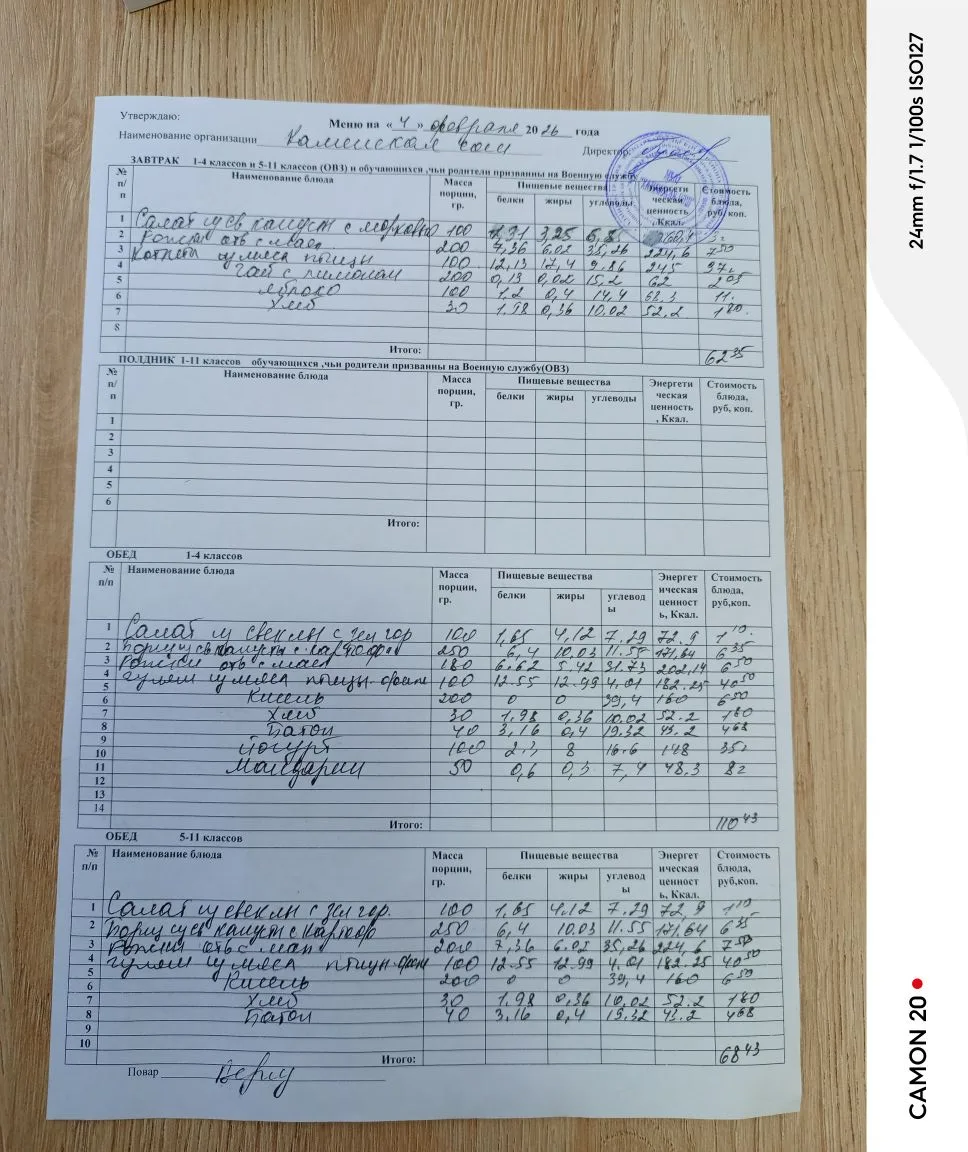 Утверждаю:
Меню на « 4 » февраля 20 26 года
Наименование организации Каминская сош Директор
ЗАВТРАК 1-4 классов и 5-11 классов (ОВЗ) и обучающихся ,чьи родители призванны на Военную службу
№ п/п Наименование блюда Масса порции, гр. Пищевые вещества Энергетическая ценность, Ккал. Стоимость блюда, руб, коп.
белки жиры углеводы
1 Салат из св капусты с морковью 100 1,31 3,25 6,8 60,4
2 отв с маслом 200 7,36 6.02 35,26 224,6 7 50
3 Котлеты из мяса птицы 100 12,13 17,4 9.86 245 37
4 Чай с лимоном 200 0,13 0,02 15,2 62 2 05
5 Яблоко 100 1.2 0,4 14,4 68.3 11.
6 Хлеб 30 1.98 0,36 10.02 52.2 1 80
7
8
Итого: 62 35
ПОЛДНИК 1-11 классов обучающихся ,чьи родители призванны на Военную службу(ОВЗ)
№ п/п Наименование блюда Масса порции, гр. Пищевые вещества Энергетическая ценность, Ккал. Стоимость блюда, руб, коп.
белки жиры углеводы
1
2
3
4
5
6
Итого:
ОБЕД 1-4 классов
№ п/п Наименование блюда Масса порции, гр. Пищевые вещества Энергетическая ценность, Ккал. Стоимость блюда, руб,коп.
белки жиры углеводы
1 Салат из свеклы с зел гор 100 1,65 4,12 7.29 72.9 1 10
2 Борщ из св капусты с картоф 250 6,4 10.03 11.55 171,64 6 35
3 отв с масл 180 6.62 5.42 31.73 202,14 6 50
4 гуляш из мяса птицы 100 12.55 12.99 4.01 182.25 40 50
5 Кисель 200 0 0 39,4 160 6 50
6 Хлеб 30 1,98 0,36 10.02 52.2 1 80
7 Батон 40 3,16 0,4 19.32 43.2 4 68
8 Йогурт 100 2.3 8 16.6 148 35
9 Мандарин 50 0,6 0,3 7,4 48.3 8
10
11
12
13
14
Итого: 110 43
ОБЕД 5-11 классов
№ п/п Наименование блюда Масса порции, гр. Пищевые вещества Энергетическая ценность, Ккал. Стоимость блюда, руб,коп.
белки жиры углеводы
1 Салат из свеклы с зел гор. 100 1,65 4,12 7.29 72,9 1 10
2 Борщ из св капуст с картоф 250 6,4 10,03 11.55 171,64 6 35
3 отв с мал 200 7,36 6.02 35,26 224,6 7 50
4 гуляш из мяса птицы 100 12.55 12.99 4.01 182.25 40 50
5 Кисель 200 0 0 39,4 160 6 50
6 Хлеб 30 1.98 0,36 10,02 52.2 1 80
7 Батон 40 3,16 0,4 19.32 43.2 4 68
8
9
10
Итого: 68 43
Повар
CAMON 20
24mm f/1.7 1/100s ISO127